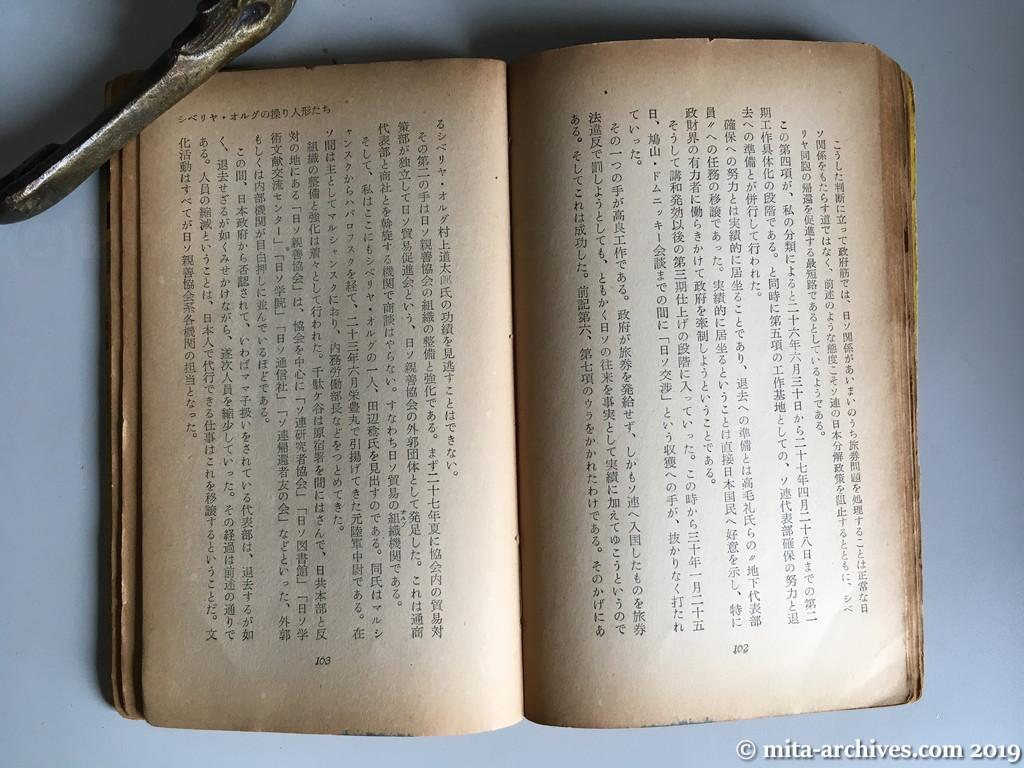 こうした判断に立って政府筋では、日ソ関係があいまいのうち旅券問題を処理することは正常な日
ソ関係をもたらす道ではなく、前述のような態度こそソ連の日本分解政策を阻止するとともに、シベ
リヤ同胞の帰還を促進する最短路であるとしているようである。
この第四項が、私の分類によると二十六年六月三十日から二十七年四月二十八日までの第二
期工作具体化の段階である。と同時に第五項の工作基地としての、ソ連代表部確保の努力と退
去への準備とが併行して行われた。
確保への努力とは実績的に居坐ることであり、退去への準備とは高毛礼氏らの〃地下代表部
員〃への任務の移譲であった。実績的に居坐るということは直接日本国民へ好意を示し、特に
政財界の有力者に働らきかけて政府を牽制しようということである。
そうして講和発効以後の第三期仕上げの段階に入っていった。この時から三十年一月二十五
日、鳩山・ドムニッキー会談までの間に「日ソ交渉」という収穫への手が、抜かりなく打たれ
ていった。
その一つの手が高良工作である。政府が旅券を発給せず、しかもソ連へ入国したものを旅券
法違反で罰しようとしても、ともかく日ソの往来を事実として実績に加えてゆこうというので
ある。そしてこれは成功した。前記第六、第七項のウラをかかれたわけである。そのかげにあ
102
シベリヤ・オルグの操り人形たち
るシベリヤ・オルグ村上道太郎氏の功績を見逃すことはできない。
その第二の手は日ソ親善協会の組織の整備と強化である。まず二十七年夏に協会内の貿易対
策部が独立して日ソ貿易促進会という、日ソ親善協会の外郭団体として発足した。これは通商
代表部と商社とを斡旋する機関で商談はやらない。すなわち日ソ貿易の組織機関である。
そして、私はここにもシベリヤ・オルグの一人、田辺稔氏を見出すのである。同氏はマルシ
ャンスクからハバロフスクを経て、二十三年六月栄豊丸で引揚げてきた元陸軍中尉である。在
ソ間は主としてマルシャンスクにおり、内務労働部長などをつとめてきた。
組織の整備と強化は着々として行われた。千駄ケ谷は原宿署を間にはさんで、日共本部と反
対の地にある「日ソ親善協会」は、協会を中心に「ソ連研究者協会」「日ソ図書館」「日ソ学
術文献交流センター」「日ソ学院」「日ソ通信社」「ソ連帰還者友の会」などといった、外郭
もしくは内部機関が目白押しに並んでいるほどである。
この間、日本政府から否認されて、いわばママ子扱いをされている代表部は、退去するが如
く、退去せざるが如くみせかけながら、逐次人員を縮少していった。その経過は前述の通りで
ある。人員の縮減ということは、日本人で代行できる仕事はこれを移譲するということだ。文
化活動はすべてが日ソ親善協会系各機関の担当となった。
103
© mita-archives.com 2019